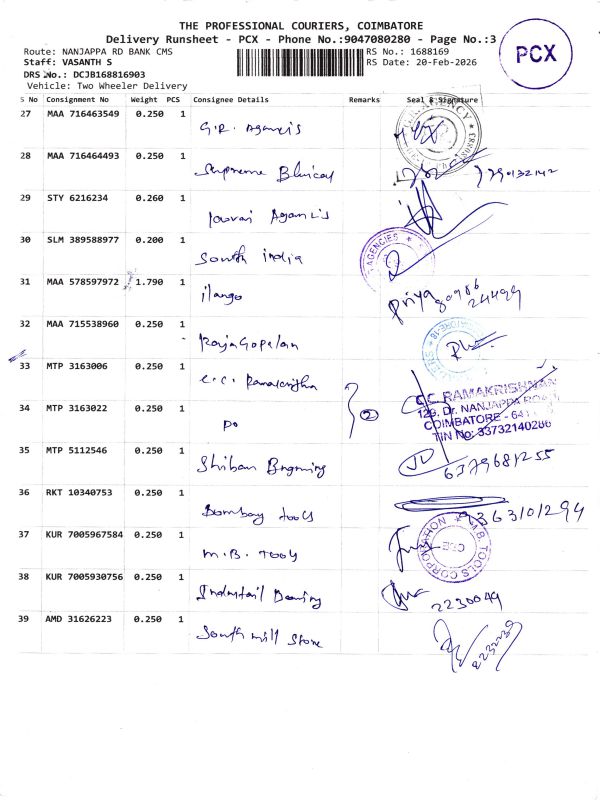 THE PROFESSIONAL COURIERS, COIMBATORE
Delivery Runsheet - PCX - Phone No.:9047080280 - Page No.:3
PCX
Route: NANJAPPA RD BANK CMS
RS No.: 1688169
Staff: VASANTH S
RS Date: 20-Feb-2026
DRS No.: DCJB168816903
Vehicle: Two Wheeler Delivery
S No Consignment No Weight PCS Consignee Details Remarks Seal & Signature
27 MAA 716463549 0.250 1 G.R. Agancis
28 MAA 716464493 0.250 1 Supreme
29 STY 6216234 0.260 1 Agancis
30 SLM 389588977 0.200 1 South india
AGENCIES
31 MAA 578597972 1.790 1 ilango Priya 80986
24499
32 MAA 715538960 0.250 1 RajaGopalan
33 MTP 3163006 0.250 1 C.C. Ramakrishna
C.C. RAMAKRISHNAN
129, Dr. NANJAPPA ROAD,
COIMBATORE - 641
TIN No: 33732140286
34 MTP 3163022 0.250 1 Do 2
35 MTP 5112546 0.250 1 Shiban 6379681255
36 RKT 10340753 0.250 1 Bombay tools 6363101294
37 KUR 7005967584 0.250 1 M.B. Tools
M.B. TOOLS CORPORATION
CBE
38 KUR 7005930756 0.250 1 2230049
39 AMD 31626223 0.250 1 South mill Store 2232239